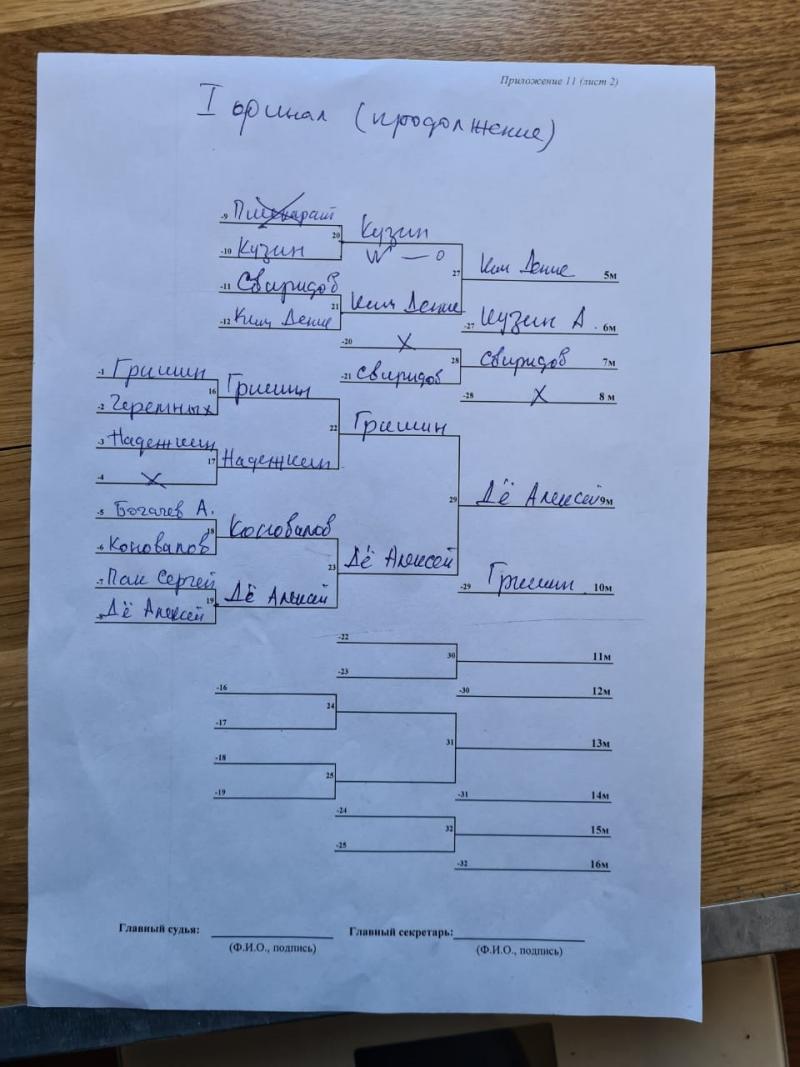 Приложение 11 (лист 2)
I финал (продолжение)
-9
20
Кузин
-10 Кузин
W — 0
27
Ким Денис 5м
-11 Свиридов
21
Ким Денис
-12 Ким Денис
-27 Кузин А. 6м
-20 X
28
Свиридов 7м
-21 Свиридов
-28 X 8 м
-1 Гришин
16
Гришин
-2 Черемных
22
Гришин
-3 Надежкин
17
Надежкин
-4 X
29
Дё Алексей 9м
-5 Богачев А.
18
Коновалов
-6 Коновалов
23
Дё Алексей
-7 Пак Сергей
19
Дё Алексей
-8 Дё Алексей
-29 Гришин 10м
-22
30
11м
-23
-30 12м
-16
24
-17
31
13м
-18
25
-19
-31 14м
-24
32
15м
-25
-32 16м
Главный судья: Главный секретарь:
(Ф.И.О., подпись) (Ф.И.О., подпись)